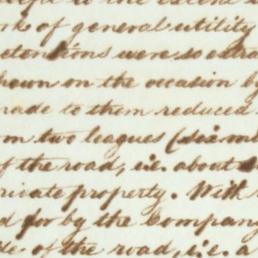 of general utility
were so extra
on the occasion by
made to them reduced
two leagues (six mi
of the road, i.e. about
private property. With
for by the Company
of the road, i.e. a